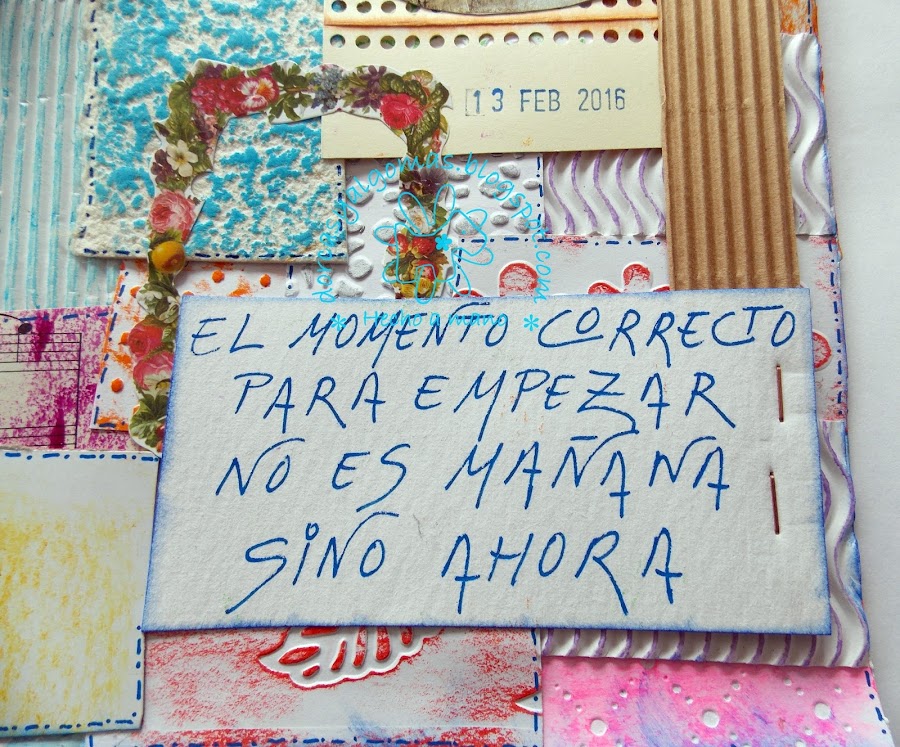 13 FEB 2016
Hecho a mano
EL MOMENTO CORRECTO
PARA EMPEZAR
NO ES MAÑANA
SINO AHORA